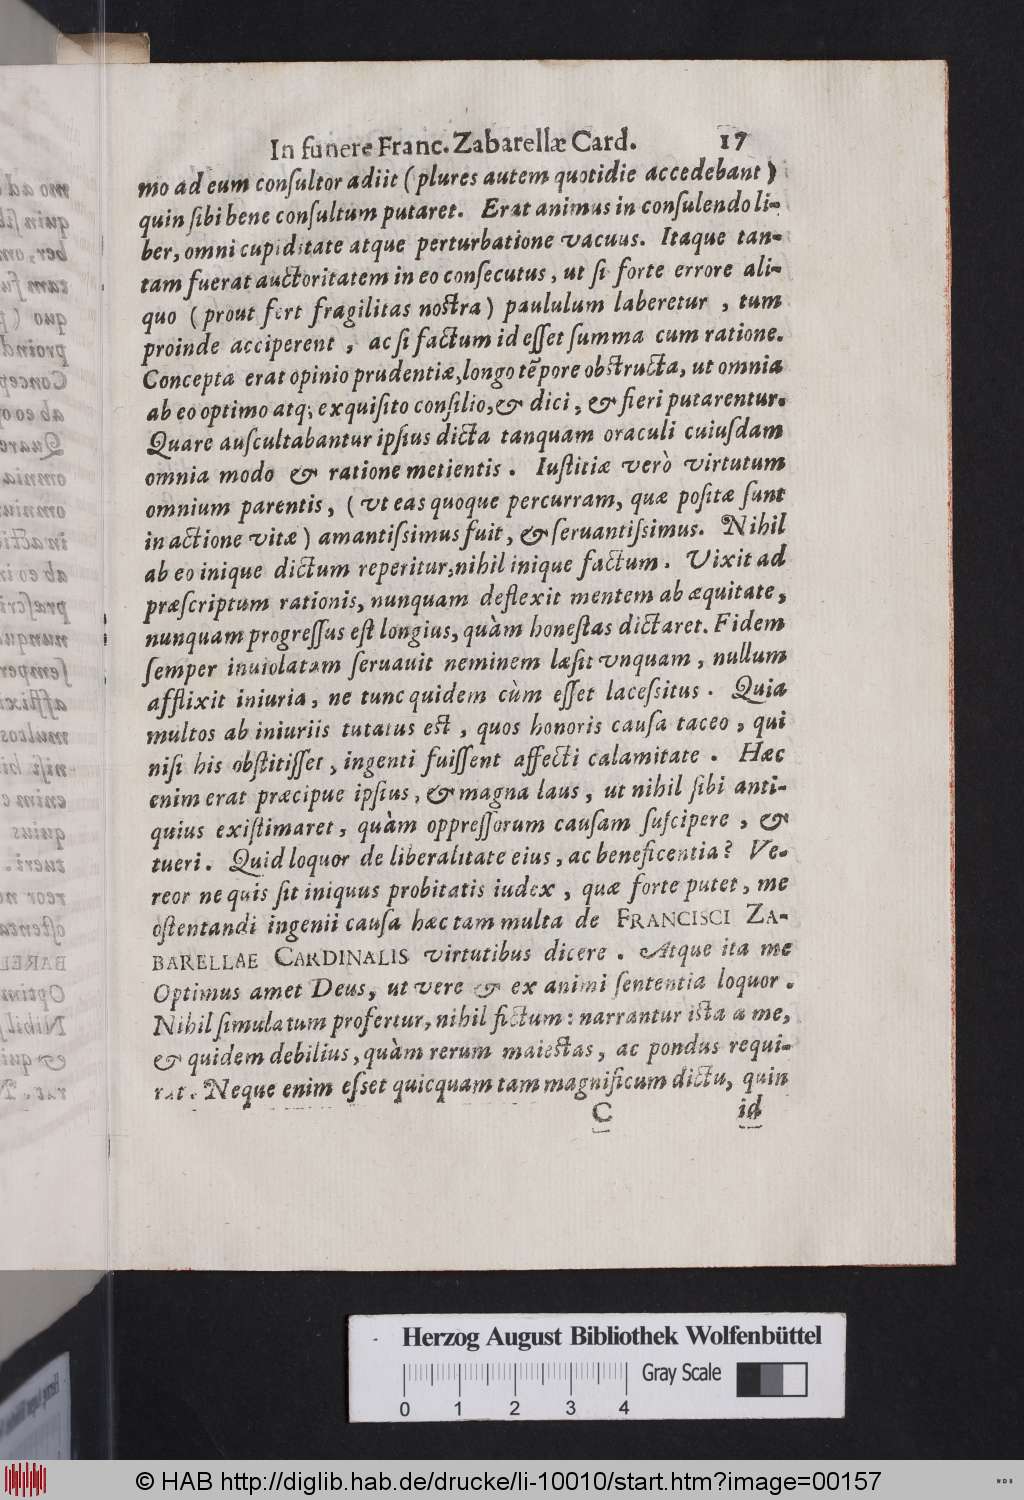 In funere Franc. Zabarellæ Card. 17
mo ad eum conſultor adiit (plures autem quotidie accedebant)
quin ſibi bene conſultum putaret. Erat animus in conſulendo li-
ber, omni cupiditate atque perturbatione vacuus. Itaque tan-
tam fuerat auctoritatem in eo conſecutus, ut ſi forte errore ali-
quo (prout fert fragilitas noſtra) paululum laberetur, tum
proinde acciperent, ac ſi factum id eſſet ſumma cum ratione.
Concepta erat opinio prudentiæ, longo tẽpore obſtructa, ut omnia
ab eo optimo atq; exquiſito conſilio, & dici, & fieri putarentur.
Quare auſcultabantur ipſius dicta tanquam oraculi cuiuſdam
omnia modo & ratione metientis. Iuſtitiæ verò virtutum
omnium parentis, (vt eas quoque percurram, quæ poſitæ ſunt
in actione vitæ) amantiſsimus fuit, & ſeruantiſsimus. Nihil
ab eo inique dictum reperitur, nihil inique factum. Vixit ad
præſcriptum rationis, nunquam deflexit mentem ab æquitate,
nunquam progreſſus eſt longius, quàm honeſtas dictaret. Fidem
ſemper inuiolatam ſeruauit neminem læſit vnquam, nullum
afflixit iniuria, ne tunc quidem cùm eſſet laceſsitus. Quia
multos ab iniuriis tutatus eſt, quos honoris cauſa taceo, qui
niſi his obſtitiſſet, ingenti fuiſſent affecti calamitate. Hæc
enim erat præcipue ipſius, & magna laus, ut nihil ſibi anti-
quius exiſtimaret, quàm oppreſſorum cauſam ſuſcipere, &
tueri. Quid loquor de liberalitate eius, ac beneficentia? Ve-
reor ne quis ſit iniquus probitatis iudex, quæ forte putet, me
oſtentandi ingenii cauſa hæc tam multa de FRANCISCI ZA-
BARELLAE CARDINALIS virtutibus dicere. Atque ita me
Optimus amet Deus, ut vere & ex animi ſententia loquor.
Nihil ſimulatum profertur, nihil fictum: narrantur iſta a me,
& quidem debilius, quàm rerum maieſtas, ac pondus requi-
rat. Neque enim eſſet quicquam tam magnificum dictu, quin
C id
Herzog August Bibliothek Wolfenbüttel
Gray Scale
0 1 2 3 4
© HAB http://diglib.hab.de/drucke/li-10010/start.htm?image=00157